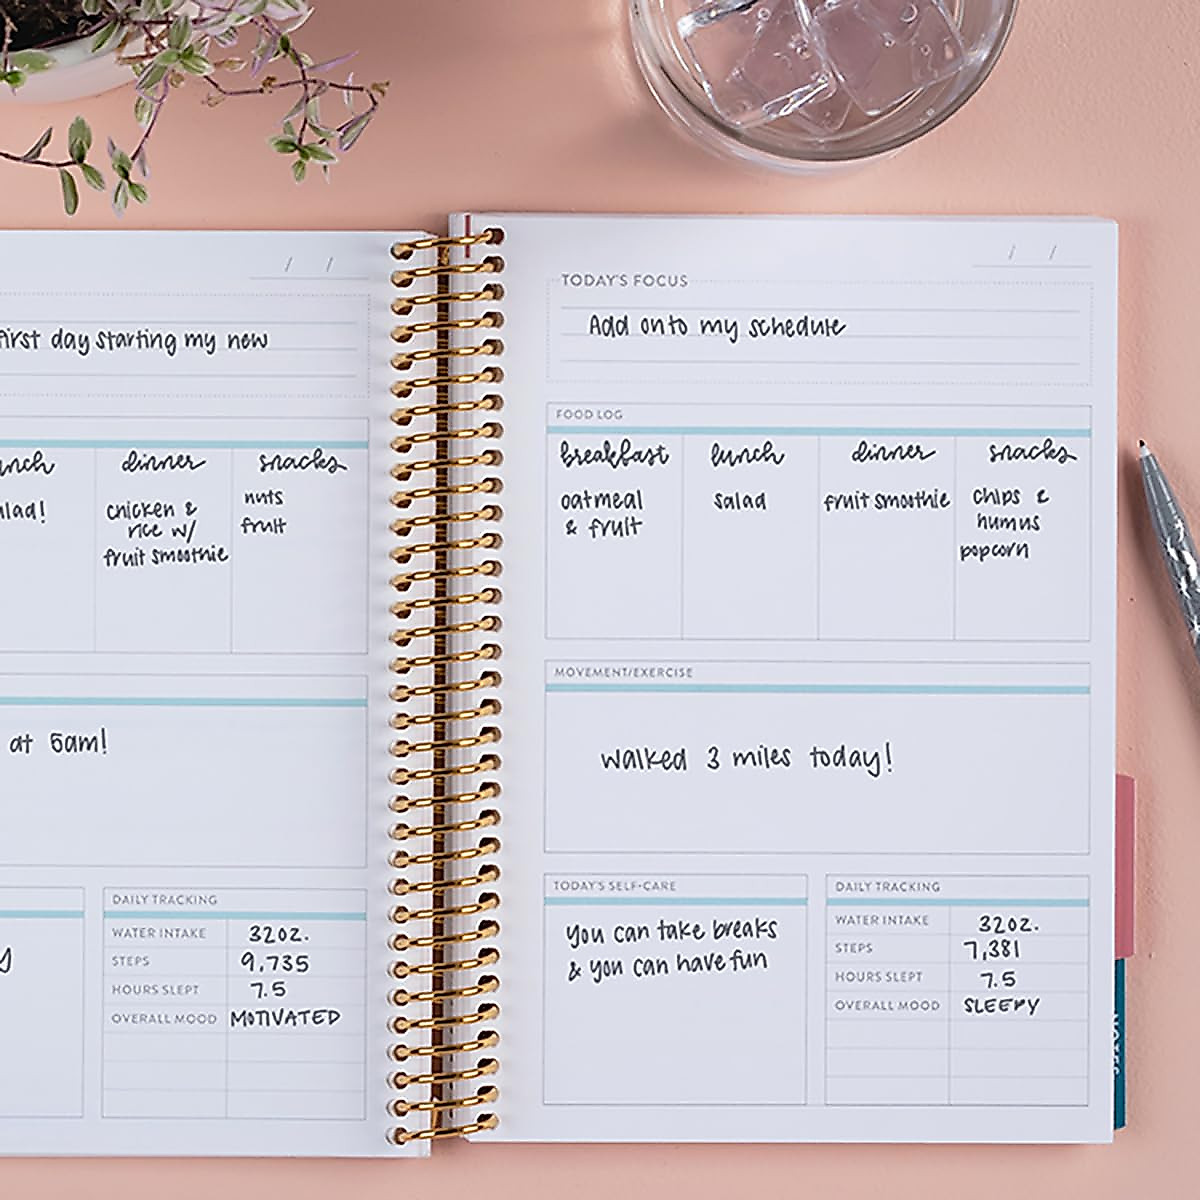 / /
first day starting my new
lunch dinner snacks
salad! chicken & nuts
rice w/ fruit
fruit smoothie
at 5am!
DAILY TRACKING
WATER INTAKE 32oz.
STEPS 9,735
HOURS SLEPT 7.5
OVERALL MOOD MOTIVATED
/ /
TODAY'S FOCUS
Add onto my schedule
FOOD LOG
breakfast lunch dinner snacks
oatmeal salad fruit smoothie chips &
& fruit humus
popcorn
MOVEMENT/EXERCISE
walked 3 miles today!
TODAY'S SELF-CARE
you can take breaks
& you can have fun
DAILY TRACKING
WATER INTAKE 32oz.
STEPS 7,381
HOURS SLEPT 7.5
OVERALL MOOD SLEEPY
NOTES